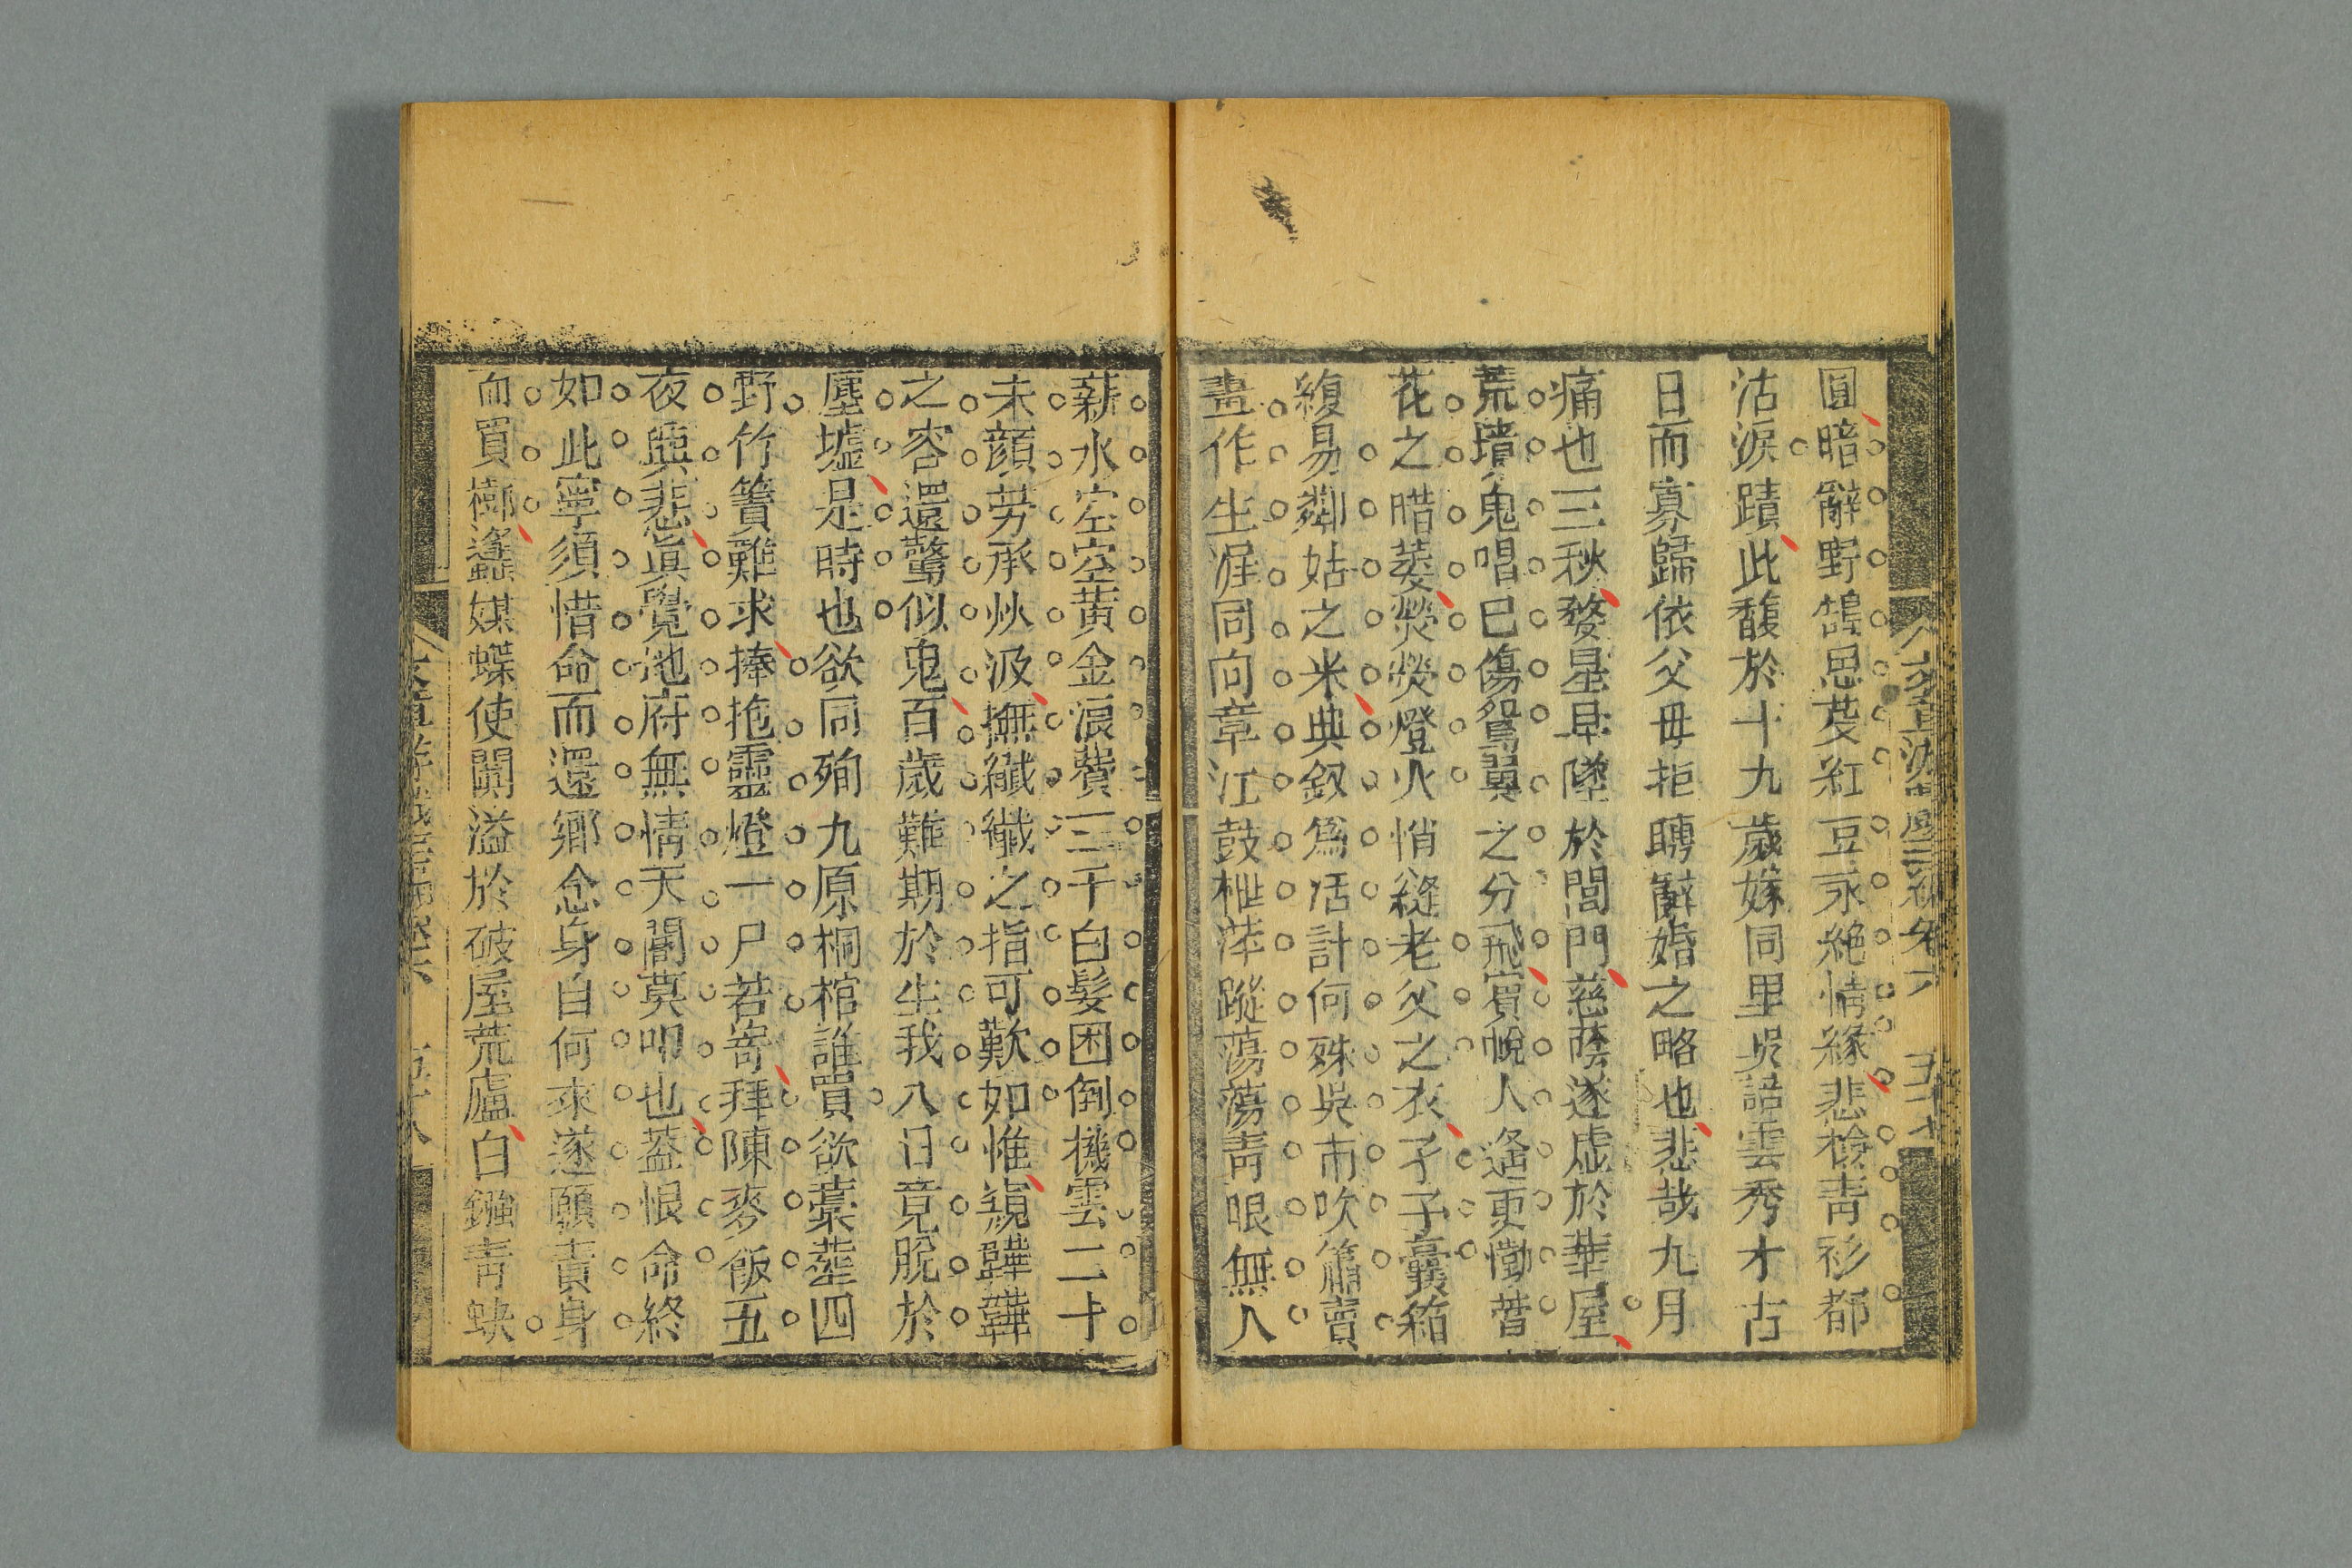 圓暗辭野鵠思茂紅豆永絕情緣悲檢青衫都
沾淚蹟此馥於十九歲嫁同里吳喆雲秀才古
日而寡歸依父母拒聘辭婚之略也悲哉九月
痛也三秋婺星早墜於閭門慈蔭遂虛於華屋
荒墳鬼唱已傷鴛翼之分飛寅帨人遙更慟昔
花之腊萎熒熒燈火悄縫老父之衣孑孑囊箱
複易鄰姑之米典釵爲活計何殊吳市吹簫賣
畫作生涯同向章江鼓枻萍蹤蕩蕩靑眼無人
薪水空空黃金浪費三千白髮困倒機雲二十
未顔勞承炊汲撫纖纖之指可歎如惟窺韡韡
之容還驚似鬼百歲難期於生我八日竟脫於
塵墟是時也欲同殉九原桐棺誰買欲藁葬四
野竹簣難求捧拖靈燈一尸若寄拜陳麥飯五
夜興悲眞覺地府無情天閽莫叩也蓋恨命終
如此寧須惜命而還鄉念身自何來遂願責身
而買槨遙媒蝶使鬧溢於破屋荒廬白鏹靑蚨